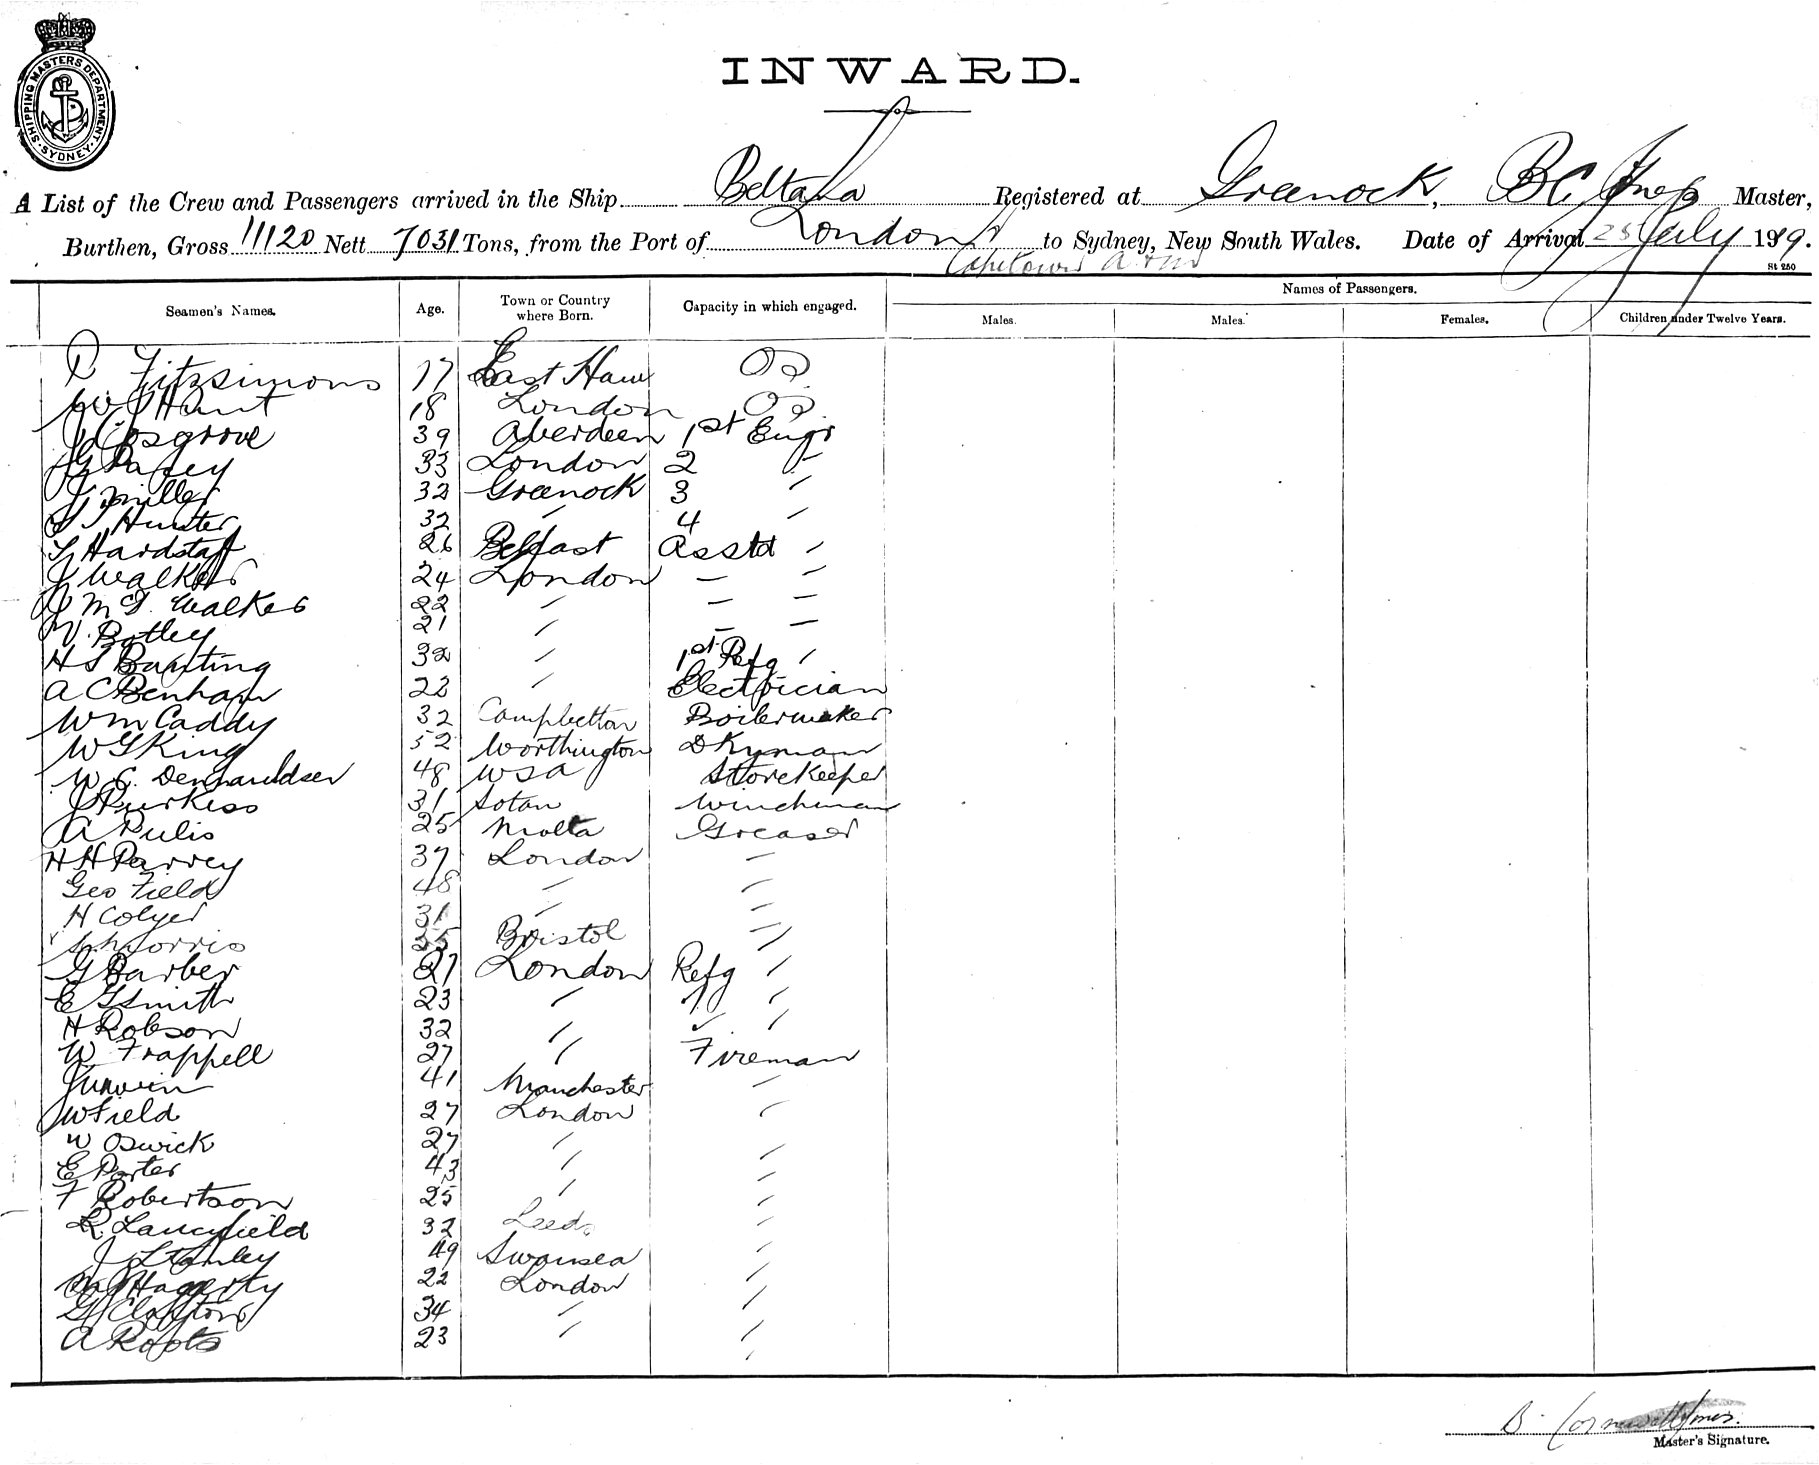 SHIPPING MASTERS DEPARTMENT. SYDNEY.
INWARD.
A List of the Crew and Passengers arrived in the Ship Beltana Registered at Greenock, B C Master,
Burthen, Gross 11120 Nett 7031 Tons, from the Port of London to Sydney, New South Wales. Date of Arrival 25 July 1919.
Capetown
St 250
Seamen's Names. Age. Town or Country where Born. Capacity in which engaged. Names of Passengers.
Males. Males. Females. Children under Twelve Years.
R Fitzsimons 17 East Ham OS
W J Hunt 18 London OS
J Cosgrove 39 Aberdeen 1st Engr
J G Pavey 33 London 2 "
J Miller 32 Greenock 3 "
S J Hunter 32 " 4 "
G Hardstaff 26 Belfast Asstd "
J Walker 24 London " "
J McG. Walker 22 " " "
W. Botley 21 " " "
H S Banting 32 " 1st Refg "
A C Benham 22 " Electrician
Wm Caddy 32 Campbelton Boilermaker
W G King 52 Worthington Dkyman
W. C. 48 USA Storekeeper
J Purkiss 31 Soton Winchman
A Pulis 25 Malta Greaser
H H Parrey 37 London "
Geo Field 48 " "
H Colyer 31 " "
Morris 35 Bristol "
G Barber 21 London Refg "
E G Smith 23 " " "
H Robson 32 " " "
W Frappell 27 " Fireman
J Unwin 41 Manchester "
J W Field 27 London "
W Oswick 27 " "
E Porter 43 " "
F Robertson 25 " "
R. Laucyfield 32 Leeds "
J Stanley 49 Swansea "
Haggerty 22 London "
G Clayton 34 " "
A Roots 23 " "
B.
Master's Signature.